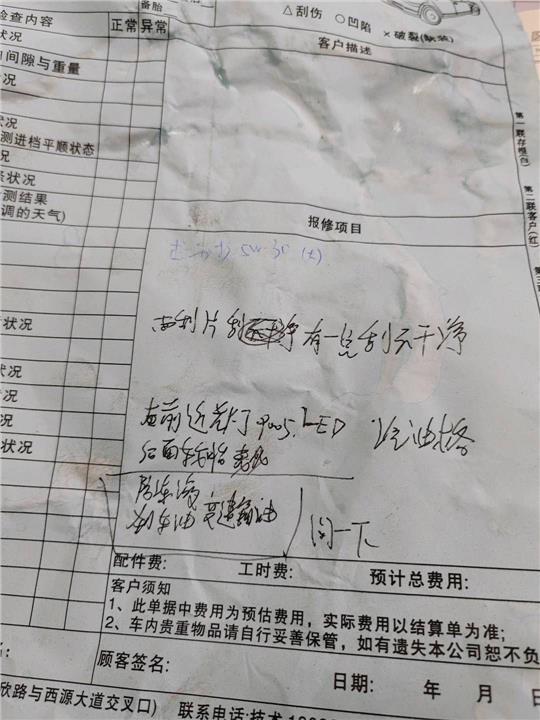 备胎
△刮伤 ○凹陷 ×破裂(缺装)
检查内容 正常 异常
客户描述
状况
间隙与重量
状况
测进档平顺状态
状况
测结果
调的天气)
第一联存根(白)
第二联客户(红)
报修项目
5W-30
雨刮片刮 有一点刮不干净
状况
左前近光灯 9005 LED 汽油格
状况
状况
防冻液
刹车油 变速箱油
问一下
配件费: 工时费: 预计总费用:
客户须知
1、此单据中费用为预估费用,实际费用以结算单为准;
2、车内贵重物品请自行妥善保管,如有遗失本公司恕不负
顾客签名:
日期: 年 月
欣路与西源大道交叉口) 联系电话:技术